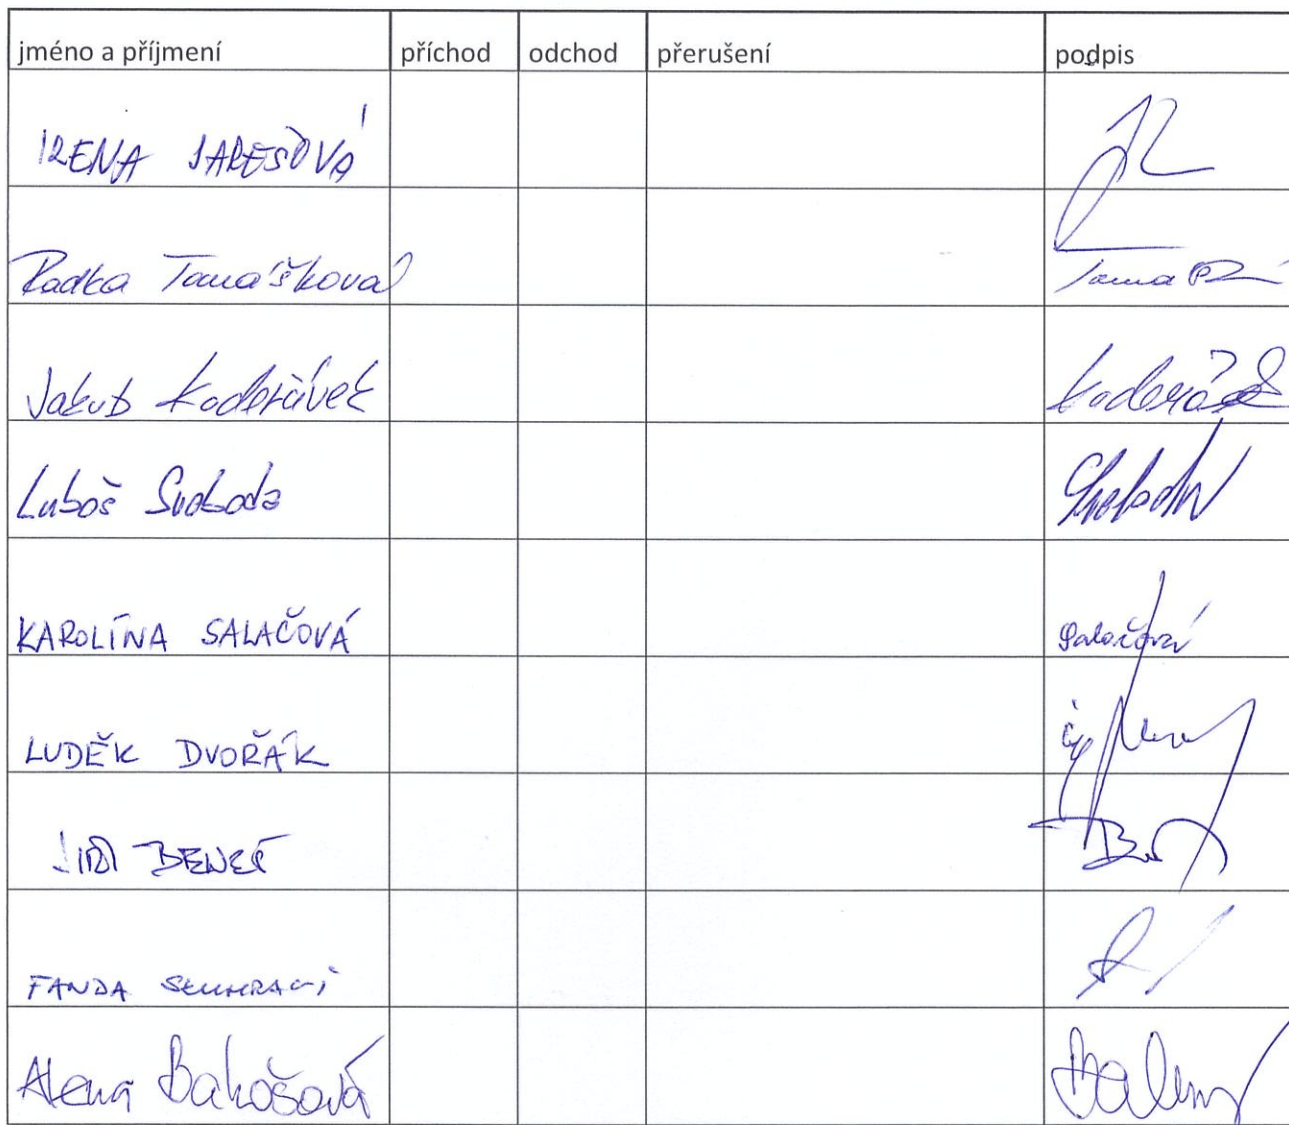 jméno a příjmení příchod odchod přerušení podpis
IRENA JAREŠOVÁ
Radka Tomášková
Jakub Kadeřávek Kadeřávek
Luboš Svoboda Svoboda
KAROLÍNA SALAČOVÁ Salačová
LUDĚK DVOŘÁK
JIŘÍ BENEŠ
FANDA
Alena Bakošová